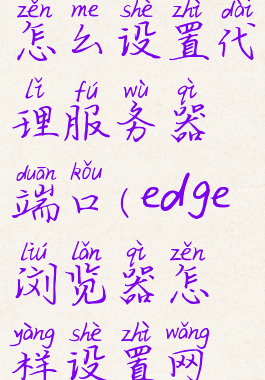 zěn me shè zhì dài
怎么设置代
lǐ fú wù qì
理服务器
duān kǒu
端口(edge
liú lǎn qì zěn
浏览器怎
yàng shè zhì wǎng
样设置网